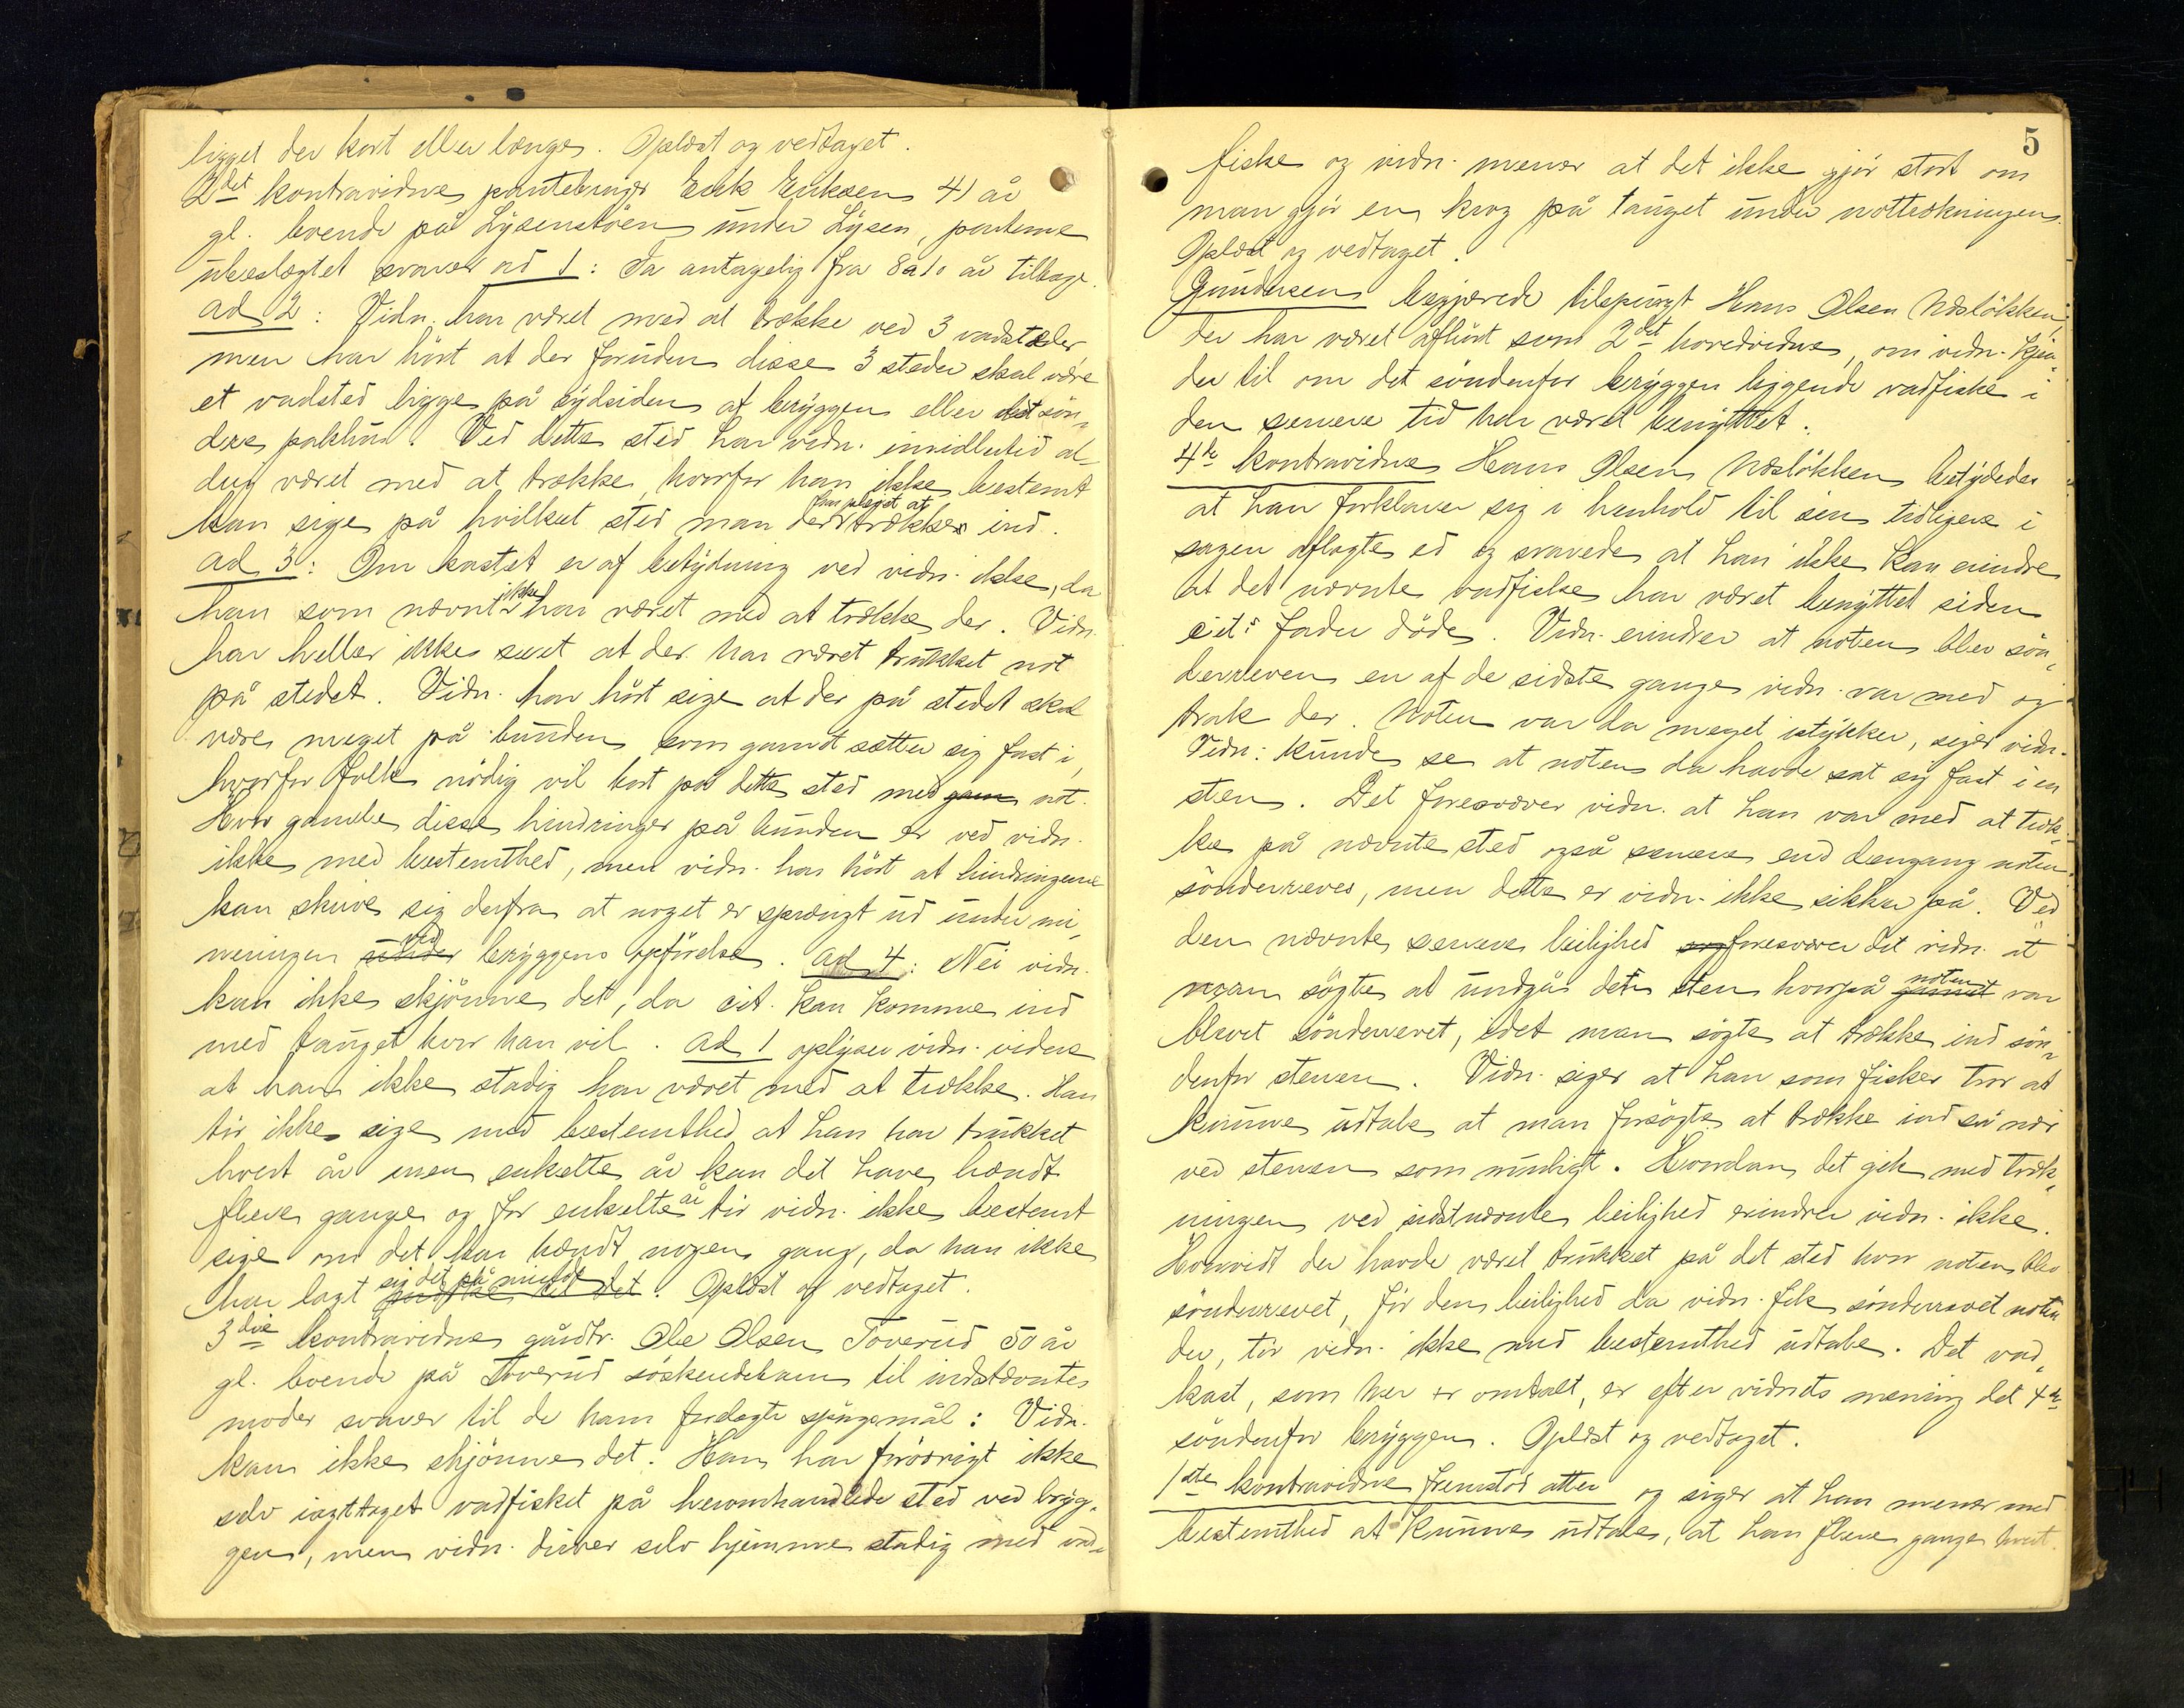 ligget der kort eller længe. Oplæst og vedtaget.
2det kontravidne pantebruger Erik Eriksen 41 år
gl. boende på Lysenstøen under Lysen, parterne
ubeslægtet svarer ad 1: Ja antagelig fra 8 a 10 år tilbage.
ad 2: Vidn. har været med at trække ved 3 vadsteder
men har hørt at der foruden disse 3 steder skal være
et vadsted ligge på sydsiden af bryggen eller det søn-
dre pakhus. Ved dette sted har vidn. imidlertid al-
drig været med at trække, hvorfor han ikke bestemt
kan sige på hvilket sted man der har pleiet at trække ind.
ad 3: Om kastet er af betydning ved vidn. ikke, da
han som nævnt ikke har været med at trække der. Vidn.
har heller ikke seet at der har været trukket not
på stedet. Vidn. har hørt sige at der på stedet skal
være meget på bunden som garnet sætter sig fast i,
hvorfor folk nødig vil kast på dette sted med garn not.
Hvor gamle disse hindringer på bunden er ved vidn.
ikke med bestemthed, men vidn. har hørt at hindringerne
kan skrive sig derfra at noget er sprængt ud under mi-
neringen under ved bryggens opførelse. ad 4: Nei vidn.
kan ikke skjønne det, da cit. kan komme ind
med tauget hvor han vil. ad 1 oplyser vidn. videre
at han ikke stadig har været med at trække. Han
tør ikke sige med bestemthed at han har trukket
hvert år men enkelte år kan det have hændt
flere gange og for enkelte år tør vidn. ikke bestemt
sige om det har hændt nogen gang, da han ikke
har lagt sig det på minde det. Oplæst og vedtaget.
3die kontravidne gårdbr. Ole Olsen Toverud 50 år
gl. boende på Toverud søskendebarn til indstævntes
moder svarer til de ham forelagte spørgsmål: Vidn.
kan ikke skjønne det. Han har forøvrigt ikke
selv iagttaget vadfisket på heromhandlede sted ved bryg-
gen, men vidn. driver selv hjemme stadig med vad-
5
fiske og vidn. mener at det ikke gjør stort om
man gjør en krog på tauget under nottrækningen.
Oplæst og vedtaget.
Gundersen begjærede tilspurgt Hans Olsen Næsløkken,
der har været afhørt som 2det hovedvidne, om vidn. kjen-
der til om det søndenfor bryggen liggende vadfiske i
den senere tid har været benyttet.
4de kontravidne Hans Olsen Næsløkken betydedes
at han forklarer sig i henhold til sin tidligere i
sagen aflagte ed og svarede at han ikke kan erindre
at det nævnte vadfiske har været benyttet siden
cit:s fader døde. Vidn. erindrer at noten blev søn-
derreven en af de sidste gange vidn. var med og
trak der. Noten var da meget istykker, siger vidn.
Vidn. kunde se at noten da havde sat sig fast i en
sten. Det foresvæver vidn. at han var med at træk-
ke på nævnte sted også senere end dengang noten
sønderreves, men dette er vidn. ikke sikker på. Ved
den nævnte senere leilighed foresvæver det vidn. at
man søgte at undgå den sten hvorpå garnet noten var
blevet sønderrevet, idet man søgte at trække ind søn-
denfor stenen. Vidn. siger at han som fisker tror at
kunne udtale at man forsøgte at trække ind så nær
ved stenen som muligt. Hvordan det gik med træk-
ningen ved sidstnævnte leilighed erindrer vidn. ikke.
Hvorvidt der havde været trukket på det sted hvor noten blev
sønderrevet, før den leilighed da vidn. fik sønderrevet noten
der, tør vidn. ikke med bestemthed udtale. Det vad-
kast, som her er omtalt, er efter vidnets mening det 4de
søndenfor bryggen. Oplæst og vedtaget.
1ste kontravidne fremstod atter og siger at han mener med
bestemthed at kunne udtale, at han flere gange hvert